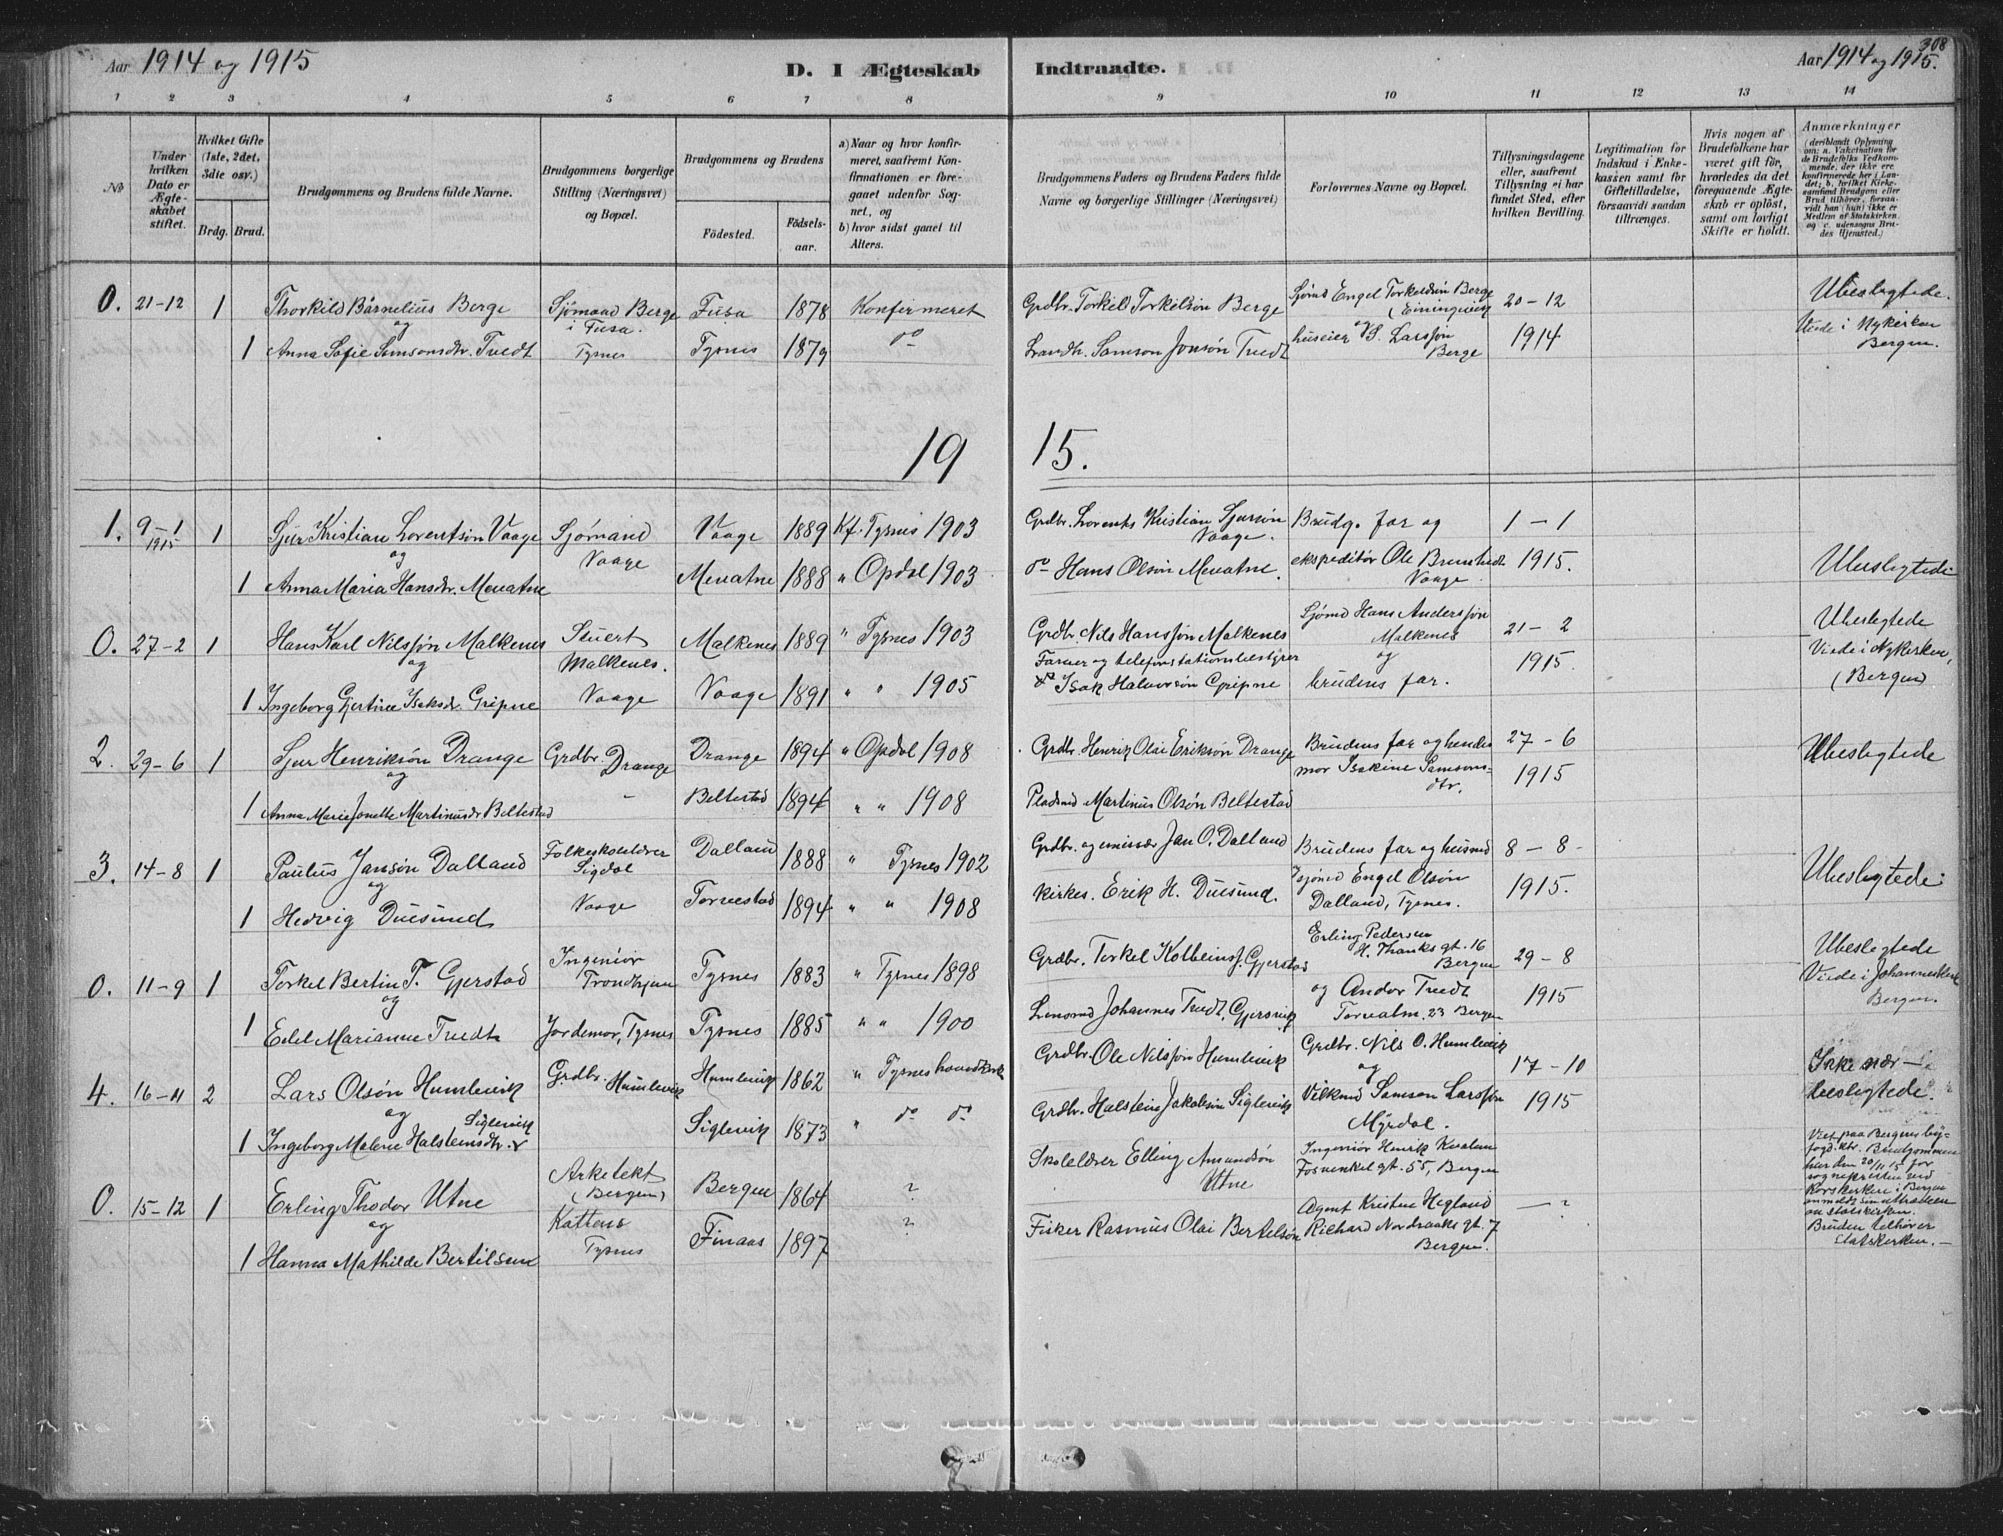 Aar 1914 og 1915
D. I Ægteskab Indtraadte.
308
Aar 1914 og 1915.
1 2 3 4 5 6 7 8 9 10 11 12 13 14
No
Under hvilken Dato er Ægteskabet stiftet.
Hvilket Gifte (1ste, 2det, 3die osv.)
Brdg. Brud.
Brudgommens og Brudens fulde Navne.
Brudgommens borgerlige Stilling (Næringsvei) og Bopæl.
Brudgommens og Brudens
Fødested.
Fødselsaar.
a) Naar og hvor konfirmeret, saafremt Konfirmationen er foregaaet udenfor Sognet, og
b) hvor sidst gaaet til Alters.
Brudgommens Faders og Brudens Faders fulde Navne og borgerlige Stillinger (Næringsvei)
Forlovernes Navne og Bopæl.
Tillysningsdagene eller, saafremt Tillysning ei har fundet Sted, efter hvilken Bevilling.
Legitimation for Indskud i Enkekassen samt for Giftetilladelse, forsaavidt saadan tiltrænges.
Hvis nogen af Brudefolkene har været gift før, hvorledes da det foregaaende Ægteskab er opløst, samt om lovligt Skifte er holdt.
Anmærkninger
(deriblandt Oplysning om: a. Vakcination for de Brudefolks Vedkommende, der ikke ere konfirmerede her i Landet; b. hvilket Kirkesamfund Brudgom eller Brud tilhører, forsaavidt han (hun) ikke er Medlem af Statskirken. og c. udensogns Brudes Hjemsted.)
0. 21-12 1 Thorkild Bårnelius Berge Sjömand Berge i Fusa. Fusa 1878 Konfirmeret Grdbr. Torkild Torkelsön Berge Sjömd Engel Torkeldsön Berge (Einingvik) 20-12 Ubeslegtede.
og
1 Anna Sofie Samsonsdtr. Tvedt Tysnes Tysnes 1879 do Landh. Samson Jonsön Tvedt huseier S. Larssön Berge 1914 Viede i Nykirken Bergen.
1915.
1. 9-1 1915 1 Sjur Kristian Lorentsön Vaage Sjømand Vaage Vaage 1889 Kf. Tysnes 1903 Grdbr. Lorents Kristian Sjursön Vaage. Brudg. far og 1-1
og
1 Anna Maria Hansdtr. Mevatne Mevatne 1888 " Opdal 1903 do Hans Olsön Mevatne. ekspeditör Ole Vaage 1915. Ubeslegtede
0. 27-2 1 Hans Karl Nilssön Malkenes Stuert Malkenes. Malkenes 1889 " Tysnes 1903 Grdbr. Nils Hanssön Malkenes Sjömd Hans Anderssön Malkenes 21-2 Ubeslegtede
og
1 Ingeborg Gjertine Isaksdr. Gripne Vaage Vaage 1891 " " 1905 Farver og telefonstationsbestyrer Isak Halvorsön Gripne og brudens far. 1915. Viede i Nykirken, (Bergen)
2. 29-6 1 Sjur Henriksön Drange Grdbr. Drange Drange 1894 " Opdal 1908 Grdbr. Henrik Olai Eriksön Drange Brudens far og hendes 27-6 Ubeslegtede
og
1 Anna Marie Jonette Martinusdr Beltestad - Beltestad 1894 " " 1908 Pladsmd Martinus Olsön Beltestad mor Isakine Samsonsdtr. 1915
3. 14-8 1 Paulus Jansön Dalland Folkeskolelærer Sigdal Dalland 1888 " Tysnes 1902 Grdbr. og emissær Jan O. Dalland Brudens far og husmd 8-8 Ubeslegtede
og
1 Hedvig Duesund Vaage Torvestad 1894 " " 1908 Kirkes. Erik H. Duesund. sjömd Engel Olsön Dalland, Tysnes. 1915.
0. 11-9 1 Torkel Bertin T. Gjerstad Ingeniör Trondhjem Tysnes 1883 " Tysnes 1898 Grdbr. Torkel Kolbeins. Gjerstad Erling Pedersen H. Thanks gt. 16 Bergen 29-8 Ubeslegtede
og
1 Edel Marianne Tvedt Jordemor, Tysnes Tysnes 1885 " " 1900 Lensmd Johannes Tvedt, Gjersvik og Andor Tvedt Torvealm. 23 Bergen 1915 Viede i Johanneskirk Bergen.
4. 16-11 2 Lars Olsön Humlevik Grdbr. Humlevik Humlevik 1862 " Tysnes hovedkirke Grdbr. Ole Nilssön Humlevik Grdbr. Nils O. Humlevik 17-10 Ikke nær-
og
1 Ingeborg Malene Halsteinsdtr. Siglevik Siglevik 1873 " do do Grdbr. Halstein Jakobsön Siglevik og Vilkmd Samson Larssön Myrdal. 1915 beslegtede.
0. 15-12 1 Erling Thodor Utne Arkitekt (Bergen) Bergen 1864 ? Skolelærer Elling Amundsön Utne Ingeniör Henrik Kvalen Fosvenkel gt. 55, Bergen
og
1 Hanna Mathilde Bertilsen Kattens Tysnes Finaas 1897 ? Fisker Rasmus Olai Bertelsön Agent Kristen Hegland Richard Nordraaks gt. 7 Bergen. - ?
Viet paa Bergens byfogdktr. Brudgommen har den 20/11 15 for sognepresten ved Korskirken i Bergen anmeldt sin uttræden au statskirken. Bruden tilhører statskirken. -